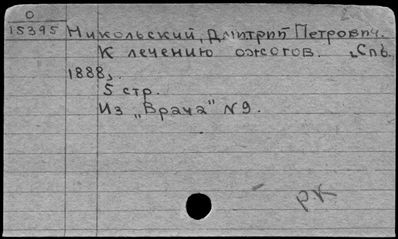 О
15395 Никольский, Дмитрий Петрович.
К лечению ожогов. Спб.,
1888,
5 стр.
Из „Врача" N9.
рк